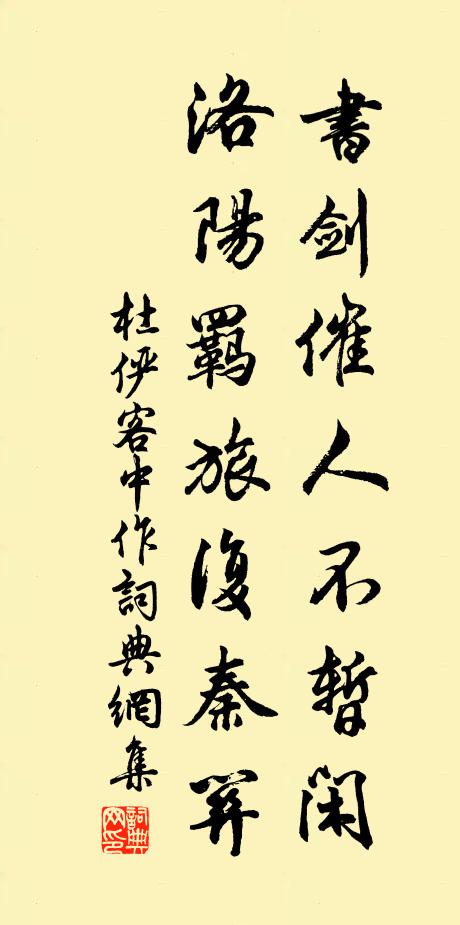 書劍催人不暫閑
洛陽羈旅復秦關
杜俨客中作詞典網集
詞典网印